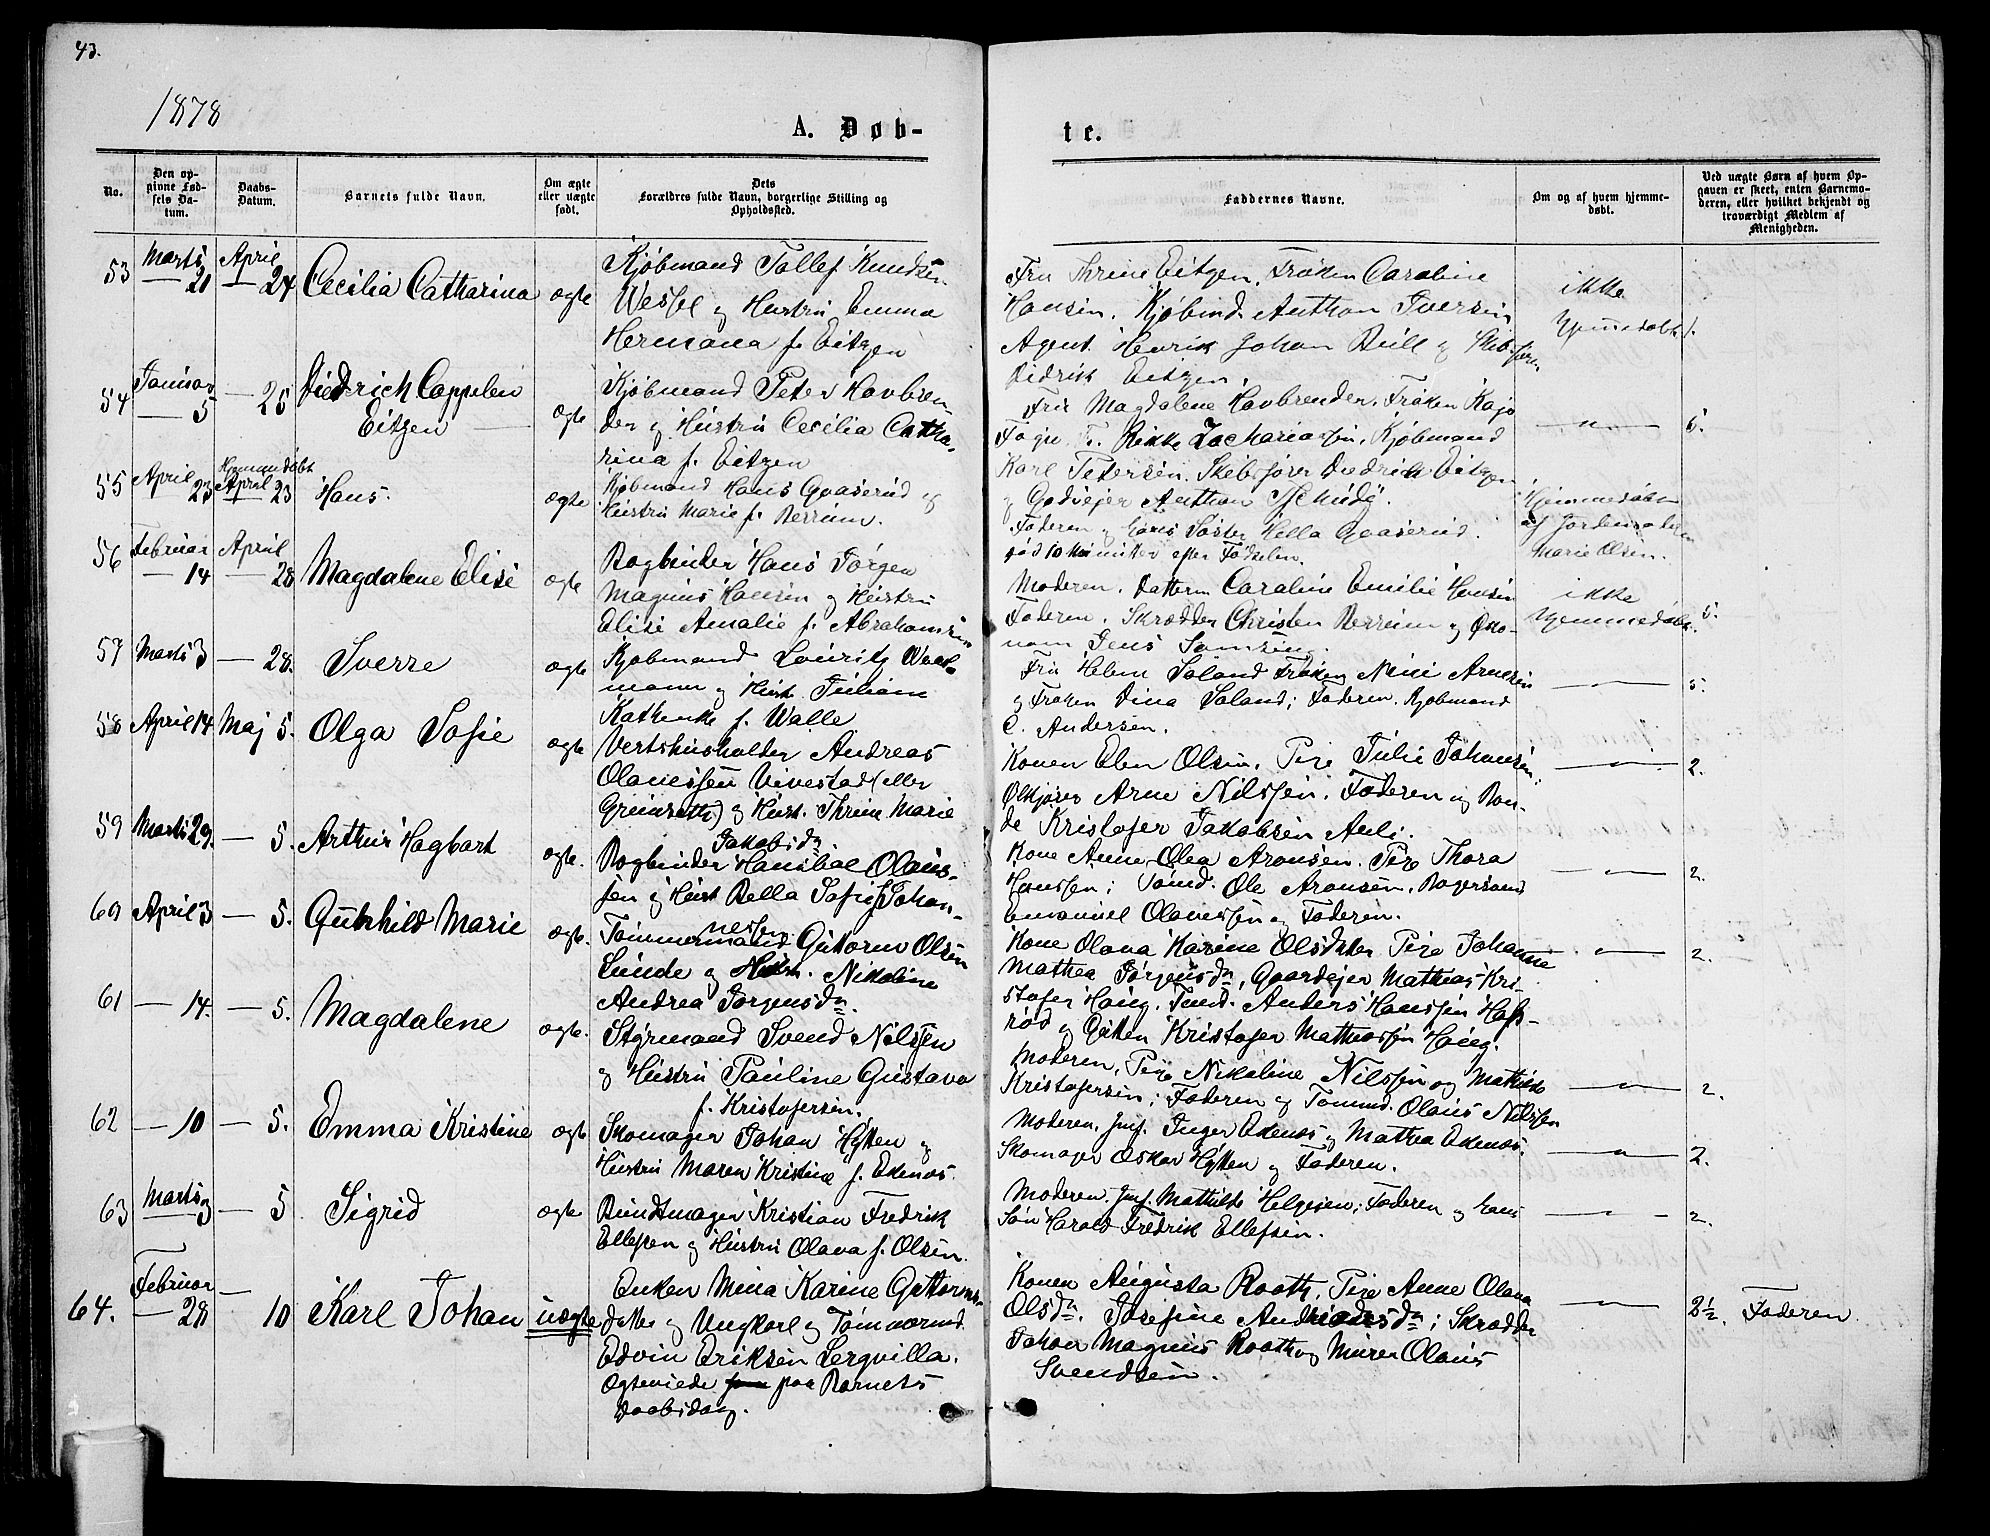 43.
1878
A. Døb-
te.
No.
Den op-
givne Fød-
sels Da-
tum.
Daabs-
Datum.
Barnets fulde Navn.
Om ægte
eller uægte
født.
Dets
Forældres fulde Navn, borgerlige Stilling og
Opholdssted.
Faddernes Navne.
Om og af hvem hjemme-
døbt.
Ved uægte Børn af hvem Op-
gaven er skeet, enten Barnemo-
deren, eller hvilket bekjendt og
troværdigt Medlem af
Menigheden.
53 Marts 21 April 24 Cecilia Catharina ægte
Kjøbmand Tollef Knudsen
Wessel og Hustru Emma
Hermana f. Eitzen
Fru Thrine Eitzen, Frøken Caroline
Hansen, Kjøbmd. Anthon Iversen
Agent Henrik Johan Bull og Skibsfører
Didrik Eitzen.
ikke
hjemmedøbt 1.
54 Januar 5 — 25 Diedrich Cappelen
Eitzen ægte
Kjøbmand Peter Havbren-
den og Hustru Cecilia Catha-
rina f. Eitzen
Fru Magdalene Havbrenden, Frøken Kaja
Rikke Zachariassen, Kjøbmand
Karl Petersen, Skibsfører Diedrich Eitzen
og Anthon
— " — 6.
55 April 23 Hjemmedøbt April 23 Hans. ægte
Kjøbmand Hans Goaserud og
Hustru Marie f. Berrum.
Faderen og Hans Søster Hella Goaserud.
død 10 Minutter efter Fødselen.
Hjemmedøbt
af Jordemoderen
Marie Olsen.
56 Februar 14 April 28 Magdalene Elise ægte
Bogbinder Hans Jørgen
Magnus Hansen og Hustru
Elise Amalie f. Abrahamsen
Moderen, Datteren Caroline Emilie Hansen
Faderen, Skrædder Christen Berrum og Øko-
nom Jens Samsing.
ikke
hjemmedøbt. 5.
57 Marts 3 — 28. Sverre ægte
Kjøbmand Lauritz
mann og Hust. Juliane
Kathinke f. Walle
Fru Helene Søland Frøken Nini Arnesen
og Frøken Dina Søland; Faderen, Kjøbmand
C. Andersen.
— " — 5.
58 April 14 Maj 5. Olga Sofie ægte
Vertshusholder Andreas
Olaverssen Vivestad (eller
Greinsroth) og Hust. Thrine Marie
Jakobsdr.
Konen Elen Olsen, Pige Julie Johansen;
Arne Nilssen, Faderen og Bon-
de Kristofer Jakobsen Auli.
— " — 2.
59 Marts 29. — 5. Arthur Hagbart ægte.
Bogbinder Hanibal Olaus-
sen og Hust Bella Sofie f. Johan-
nessen
Kone Anne Olea Aronsen, Pige Thora
Hanssen; Tømd. Ole Aronsen, Bogersvend
Emanuel Olaussen og Faderen.
— " — 2.
60 April 3 — 5. Gunhild Marie ægte.
Tømmermand Guttorm Olsen
Lunde og Hustr. Nikoline
Andrea Jørgensdr.
Kone Olava Karine Olsdatter Pige Johanne
Mathea Jørgensdr, Gaardejer Mathias Kri-
stofer Haug, Tmd. Anders Hanssen Hafs-
rød og Gutten Kristofer Mathiassen Haug.
— " — 2.
61 — 14. — 5. Magdalene ægte.
Styrmand Svend Nilssen
og Hustru Pauline Gustava
f. Kristofersen.
Moderen, Pige Nikoline Nilssen og Mathilde
Kristofersen; Faderen og Tømmd. Olaus Nilssen
— " — 2.
62 — 10 — 5. Emma Kristine ægte
Skomager Johan Hytten og
Hustru Maren Kristine f. Ekenæs.
Moderen, Jmf. Inger Ekenæs og Mathea Ekenæs.
Skomager Oskar Hytten og Faderen.
— " — 2.
63 Marts 3 — 5 Sigrid ægte
Bundtmager Kristian Fredrik
Ellefsen og Hustru Olava f. Olsen.
Moderen, Jmf. Mathilde Helgesen; Faderen og hans
Søn Harald Fredrik Ellefsen.
— " — 2.
64. Februar 28 — 10 Karl Johan uægte
Enken Mina Karine Guttorms-
datter og Ungkarl og Tømmermd.
Edvin Eriksen Lergvilla.
Ægteviede paa Barnets
Daabsdag.
Konen Augusta Rooth, Pige Anne Olava
Olsdr, Josefine Andreasdr; Skrædder
Johan Magnus Rooth og Murer Olaus
Svendsen.
— " — 2½. Faderen